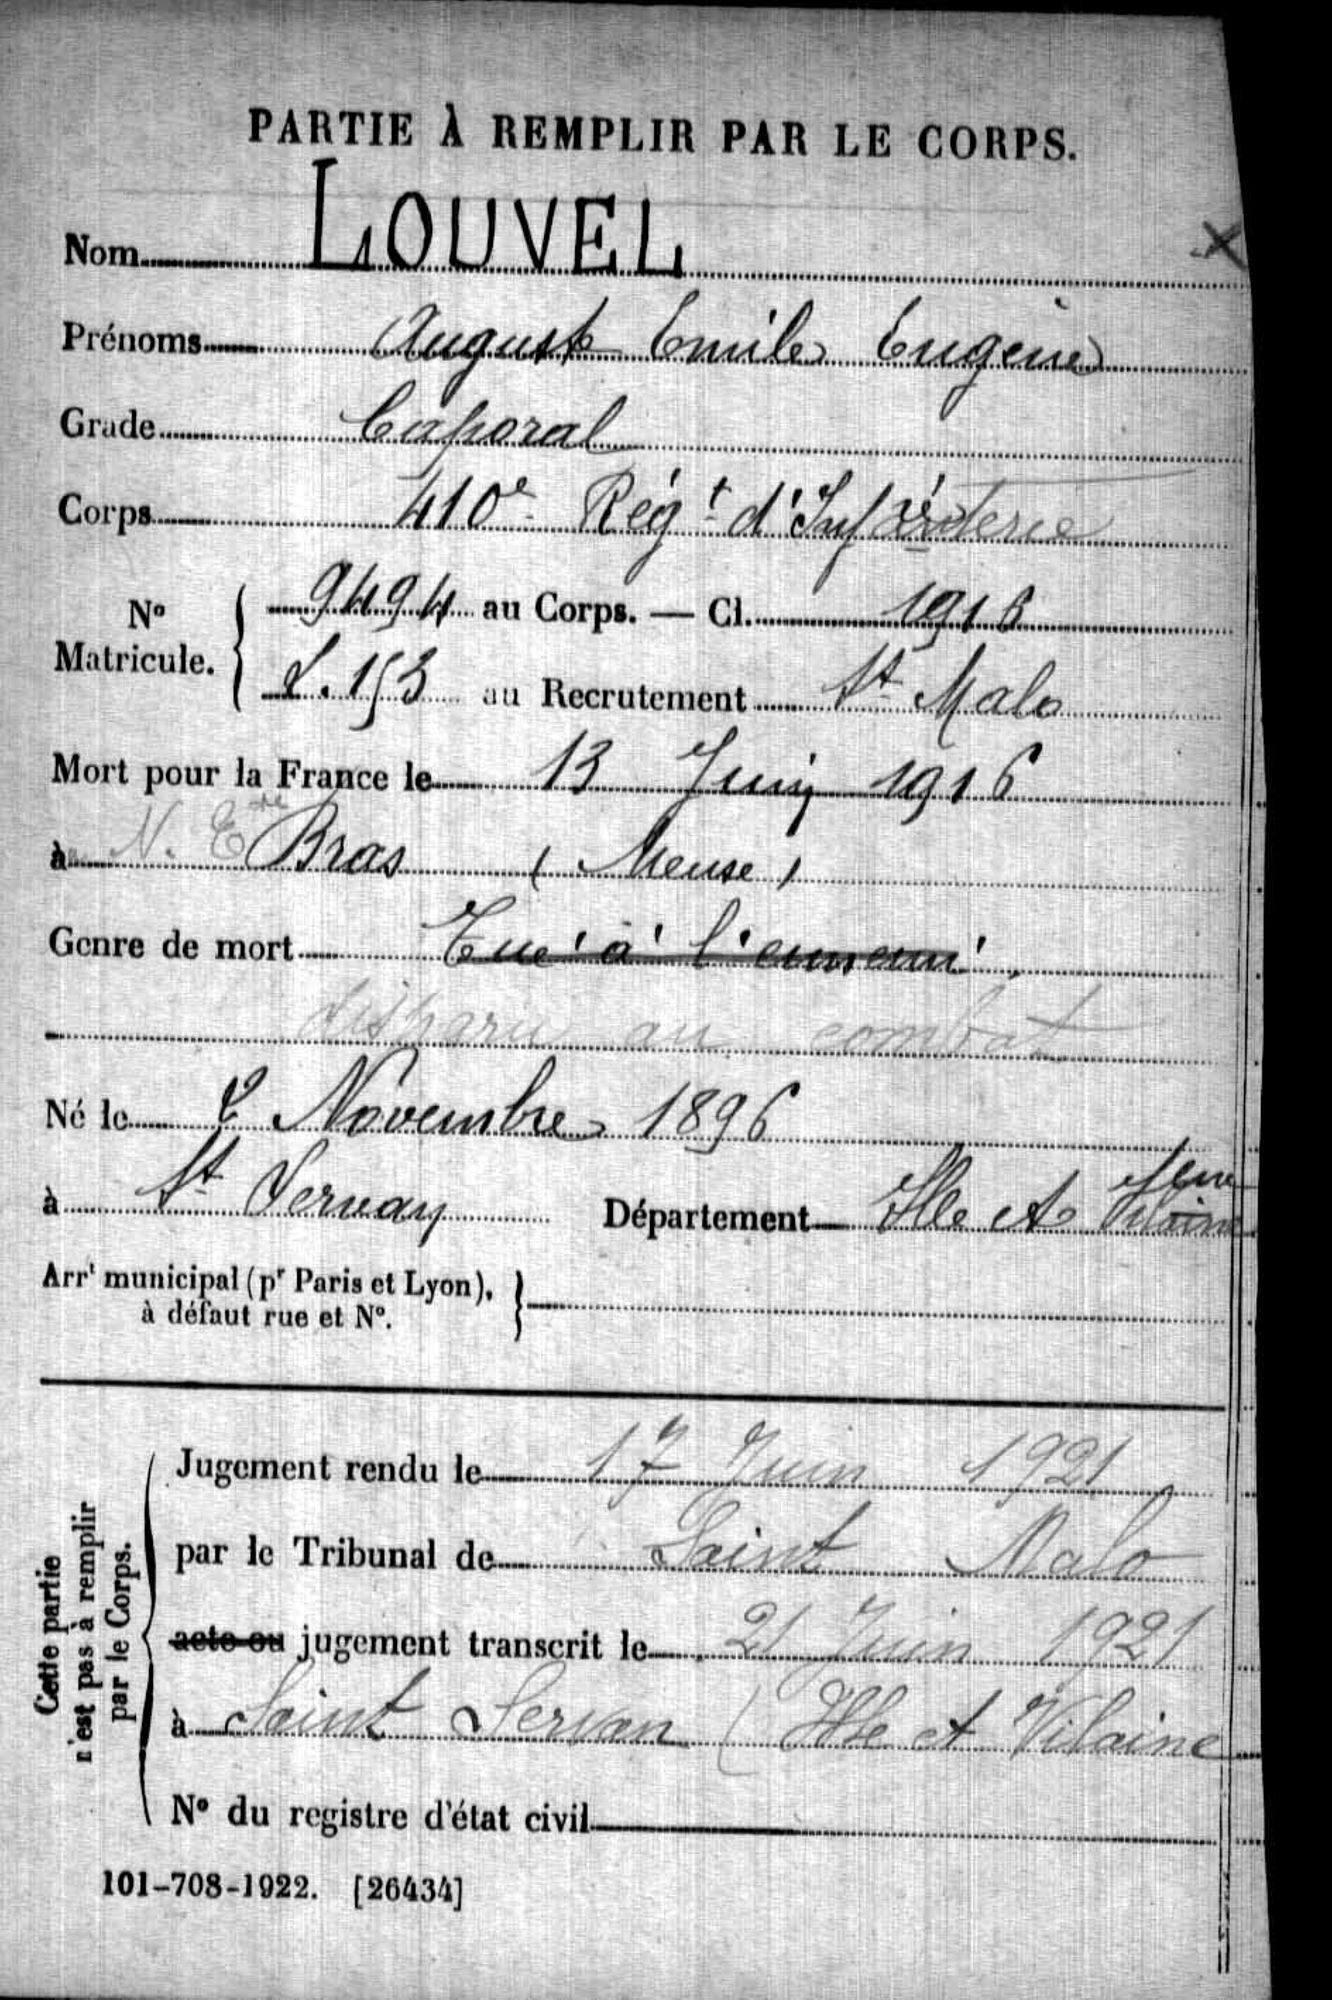 PARTIE À REMPLIR PAR LE CORPS.
Nom LOUVEL
Prénoms Auguste Emile Eugène
Grade Caporal
Corps 410e Régt d'Infanterie
No Matricule. 9494 au Corps. — Cl. 1916
L. 153 au Recrutement St Malo
Mort pour la France le 13 Juin 1916
à N. E de Bras (Meuse)
Genre de mort Tué à l'ennemi
disparu au combat
Né le 2 Novembre 1896
à St Servan Département Ille et Vilaine
Arrt municipal (pr Paris et Lyon),
à défaut rue et No.
Cette partie
n'est pas à remplir
par le Corps.
Jugement rendu le 17 Juin 1921
par le Tribunal de Saint Malo
acte ou jugement transcrit le 21 Juin 1921
à Saint Servan (Ille et Vilaine
No du registre d'état civil
101-708-1922. [26434]